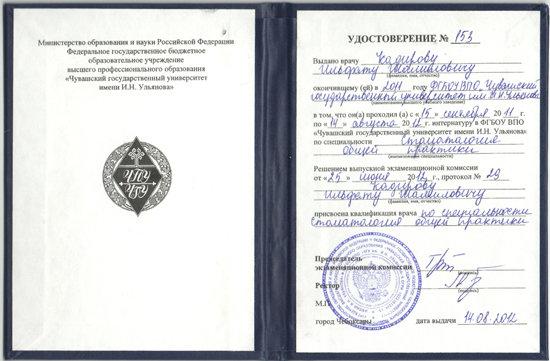 Министерство образования и науки Российской Федерации
Федеральное государственное бюджетное
образовательное учреждение
высшего профессионального образования
«Чувашский государственный университет
имени И.Н. Ульянова»
УДОСТОВЕРЕНИЕ № 153
Выдано врачу Кадирову
(фамилия, имя, отчество)
окончившему (ей) в 2011 году ФГБОУ ВПО „Чувашский
государственный университет им. И.Н. Ульянова"
(наименование высшего учебного заведения)
в том, что он(а) проходил (а) с «15» сентября 2011 г.
по «14» августа 2012 г. интернатуру в ФГБОУ ВПО
«Чувашский государственный университет имени И.Н. Ульянова»
по специальности Стоматология
общей практики
(наименование специальности)
Решением выпускной экзаменационной комиссии
от «25» июня 2012 г., протокол № 29
Кадирову
(фамилия, имя, отчество)
присвоена квалификация врача по специальности
стоматология общей практики
Председатель
экзаменационной комиссии
(подпись)
Ректор
(подпись)
М.П.
город Чебоксары дата выдачи 14.08.2012